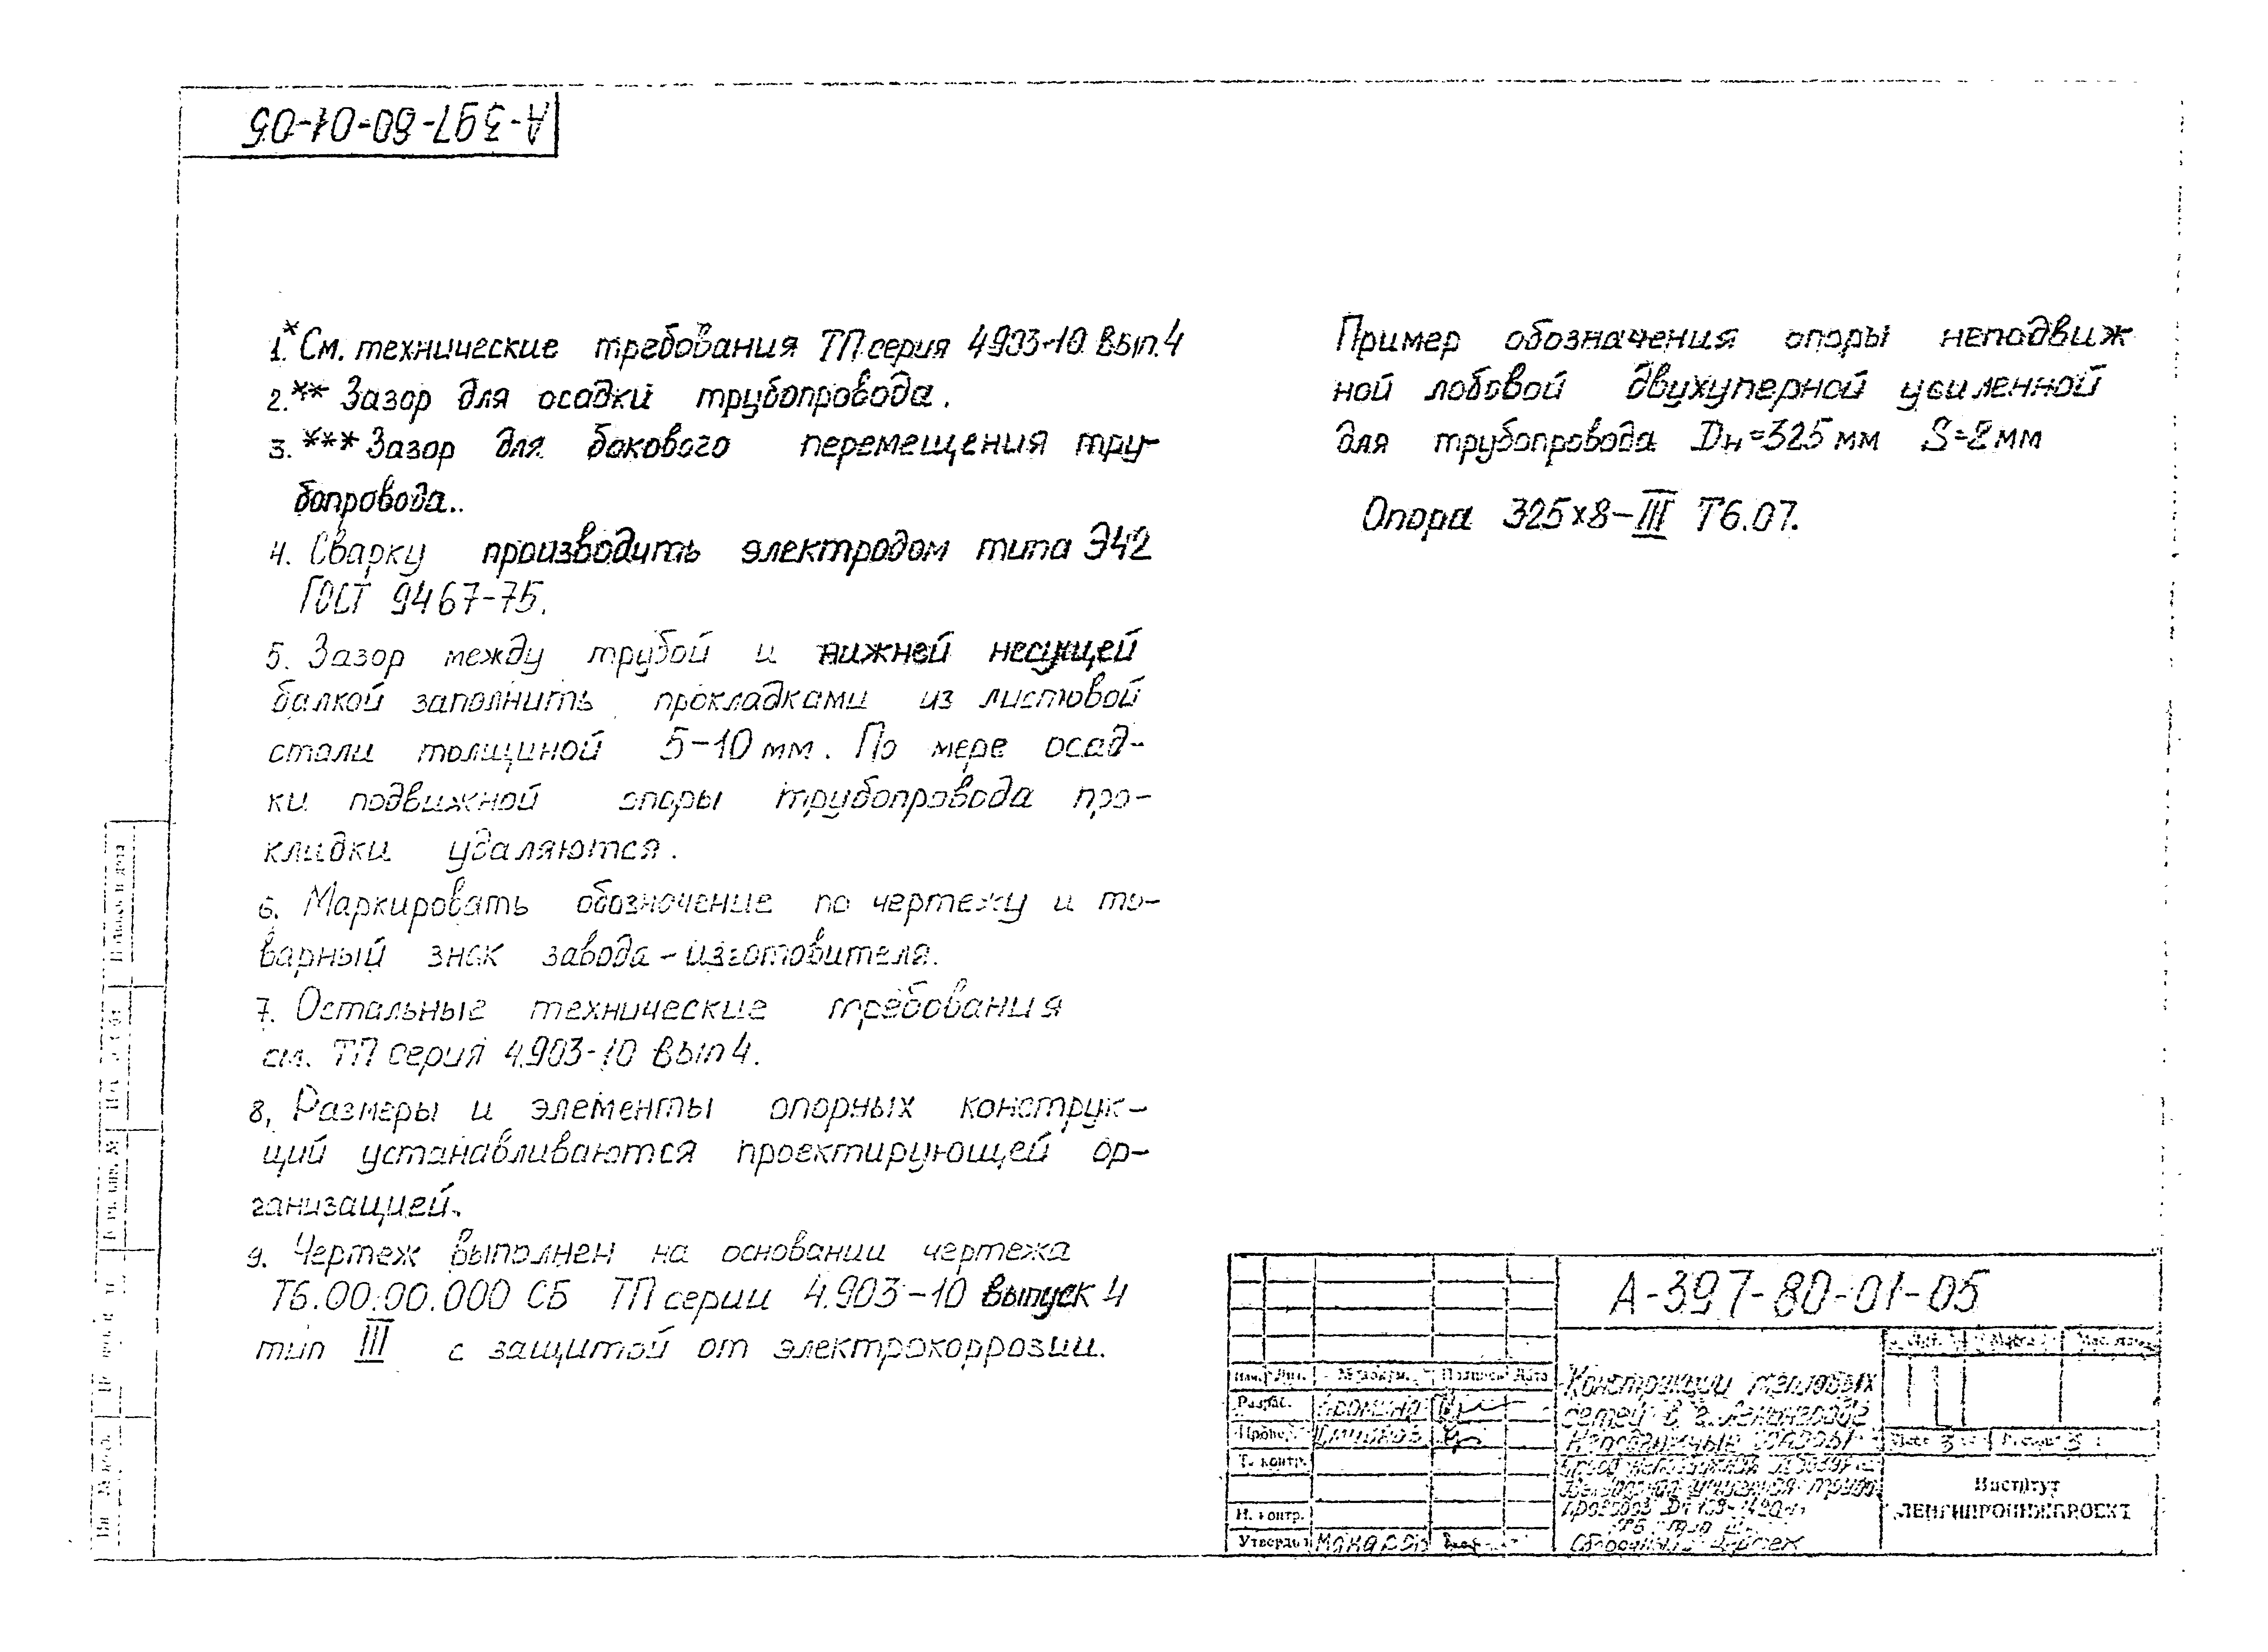 А-397-80-01-05
1.* См. технические требования ТП серия 4.903-10. Вып. 4
2.** Зазор для осадки трубопровода.
3.*** Зазор для бокового перемещения тру-
бопровода..
4. Сварку производить электродом типа Э42
ГОСТ 9467-75.
5. Зазор между трубой и нижней несущей
балкой заполнить прокладками из листовой
стали толщиной 5-10 мм. По мере осад-
ки подвижной опоры трубопровода про-
кладки удаляются.
6. Маркировать обозначение по чертежу и то-
варный знак завода-изготовителя.
7. Остальные технические требования
см. ТП серия 4.903-10 Вып 4.
8, Размеры и элементы опорных конструк-
ций устанавливаются проектирующей ор-
ганизацией.
9. Чертеж выполнен на основании чертежа
Т6.00.00.000 СБ ТП серии 4.903-10 выпуск 4
тип III с защитой от электрокоррозии.
Пример обозначения опоры неподвиж
ной лобовой двухупорной усиленной
для трубопровода Dн=325 мм S=8 мм
Опора 325х8-III Т6.07.
А-397-80-01-05
Конструкции тепловых
сетей в г. Ленинграде
Неподвижные опоры
Сборочный чертеж
Лит. Масса Масштаб
Лист 3 Листов 3
Изм. Лит. № докум. Подпись Дата
Разраб.
Провер.
Т. контр.
Н. контр.
Утвердил Макаров
Институт
ЛЕНГИПРОИНЖПРОЕКТ
Подпись и дата